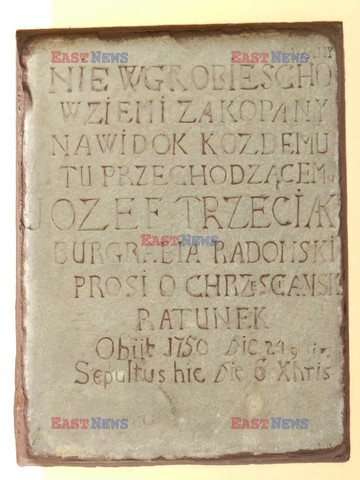 EASTNEWS EASTNEWS
NIE WGROBIE SCHO
WZIEMI ZAKOPANY
NAWIDOK KOZDEMU
TU PRZECHODZĄCEM
JOZEF TRZECIAK
BURGRABIA RADOMSKI
EASTNEWS
PROSI O CHRZESCIANSK
RATUNEK
Obijt 1750 Die 24
Sepultus hic Die 6 Xbris
EASTNEWS EASTNEWS